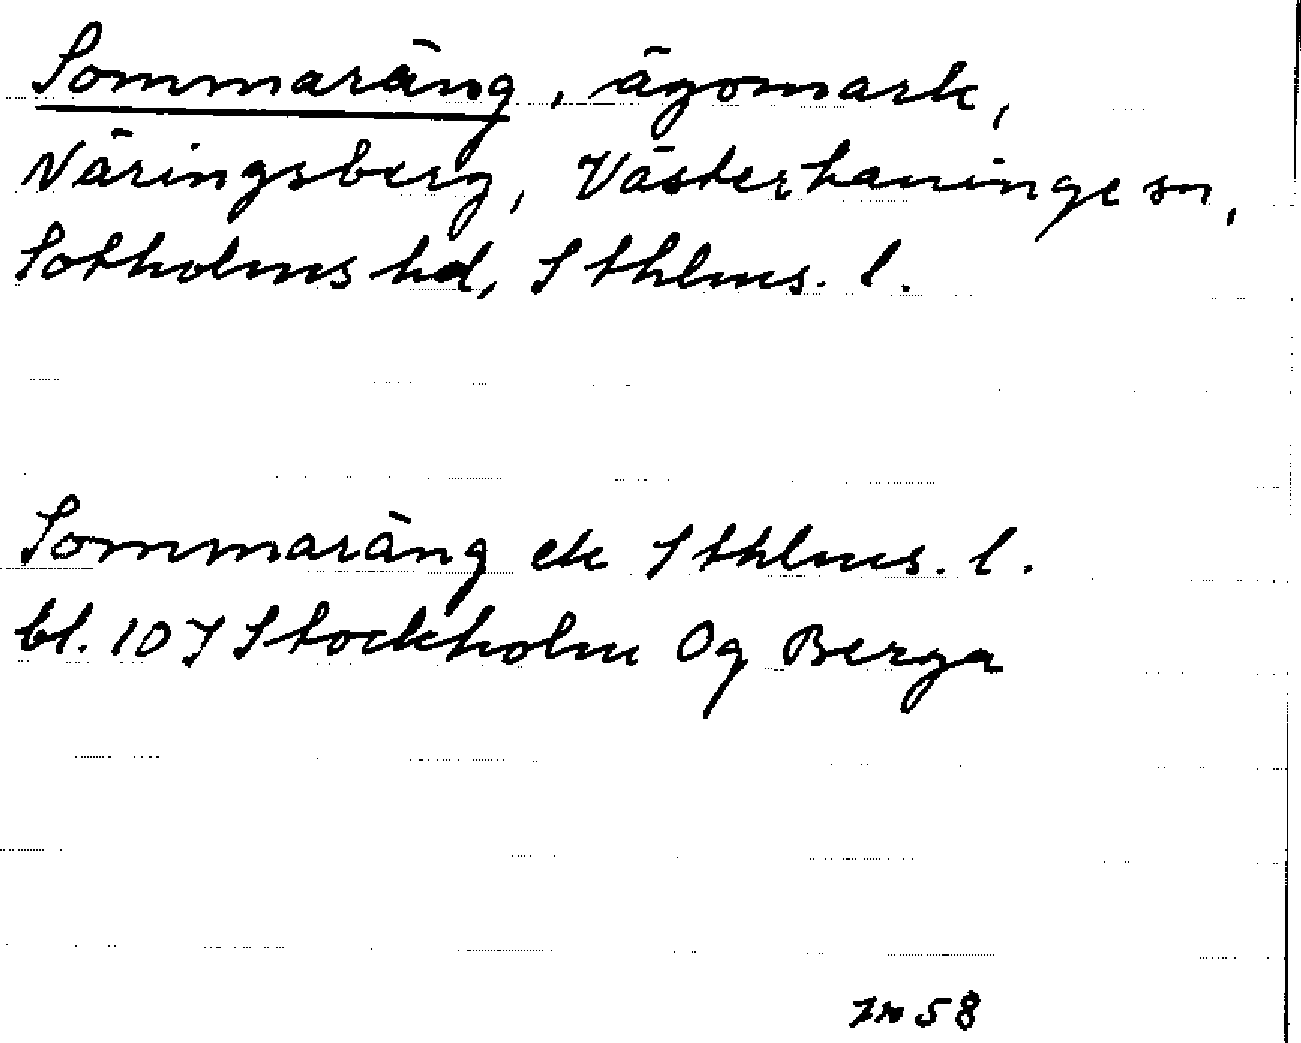 Sommaräng, ägomark,
Näringsberg, Västerhaninge sn,
Sotholms hd, Sthlms. l.
Sommaräng ek Sthlms. l.
bl. 107 Stockholm Og Berga
58